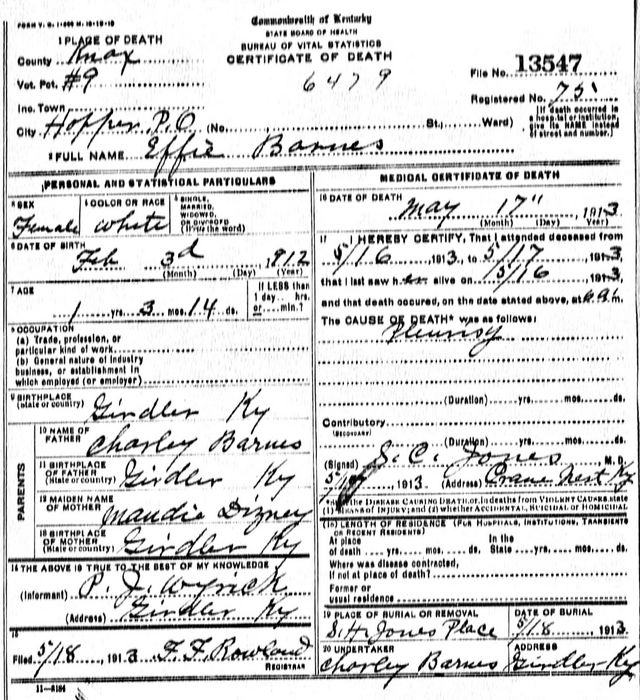 FORM V. S. 1-
Commonwealth of Kentucky
STATE BOARD OF HEALTH
BUREAU OF VITAL STATISTICS
CERTIFICATE OF DEATH
1 PLACE OF DEATH
County Knox
Vot. Pct. #9
Inc. Town
City Hopper P.O (No. St., Ward)
6479
File No. 13547
Registered No. 75
(If death occurred in a hospital or institution, give its NAME instead of street and number.)
2 FULL NAME Effie Barnes
PERSONAL AND STATISTICAL PARTICULARS
3 SEX Female
4 COLOR OR RACE White
5 SINGLE, MARRIED, WIDOWED, OR DIVORCED (Write the word)
6 DATE OF BIRTH Feb 3d, 1912
(Month) (Day) (Year)
7 AGE 1 yrs. 3 mos. 14 ds.
If LESS than 1 day.... hrs. or.... min.?
8 OCCUPATION
(a) Trade, profession, or particular kind of work
(b) General nature of industry business, or establishment in which employed (or employer)
9 BIRTHPLACE (State or country) Girdler Ky
PARENTS
10 NAME OF FATHER Charley Barnes
11 BIRTHPLACE OF FATHER (State or country) Girdler Ky
12 MAIDEN NAME OF MOTHER Maudie Dizney
13 BIRTHPLACE OF MOTHER (State or country) Girdler Ky
14 THE ABOVE IS TRUE TO THE BEST OF MY KNOWLEDGE
(Informant) P. J. Wyrick
(Address) Girdler Ky
15
Filed 5/18, 1913 F. F. Rowland
REGISTRAR
11-
MEDICAL CERTIFICATE OF DEATH
16 DATE OF DEATH May 17", 1913
(Month) (Day) (Year)
17 I HEREBY CERTIFY, That I attended deceased from
5/16 1913, to 5/17 1913
that I last saw her alive on 15/16 1913,
and that death occured, on the date stated above, at m.
The CAUSE OF DEATH* was as follows:
Pleurisy
(Duration) yrs. mos. ds.
Contributory
(SECONDARY)
(Duration) yrs. mos. ds.
(Signed) S. C. Jones M. D.
1913 (Address) Crane Nest Ky
the DISEASE CAUSING DEATH, or, in deaths from VIOLENT CAUSES, state
(1) MEANS OF INJURY; and (2) whether ACCIDENTAL, SUICIDAL or HOMICIDAL
18 LENGTH OF RESIDENCE (FOR HOSPITALS, INSTITUTIONS, TRANSIENTS OR RECENT RESIDENTS)
At place of death.... yrs.... mos.... ds. In the State.... yrs.... mos.... ds.
Where was disease contracted,
If not at place of death?
Former or
usual residence
19 PLACE OF BURIAL OR REMOVAL S. H. Jones Place
DATE OF BURIAL 5/18, 1913
20 UNDERTAKER Charley Barnes
ADDRESS Girdler Ky